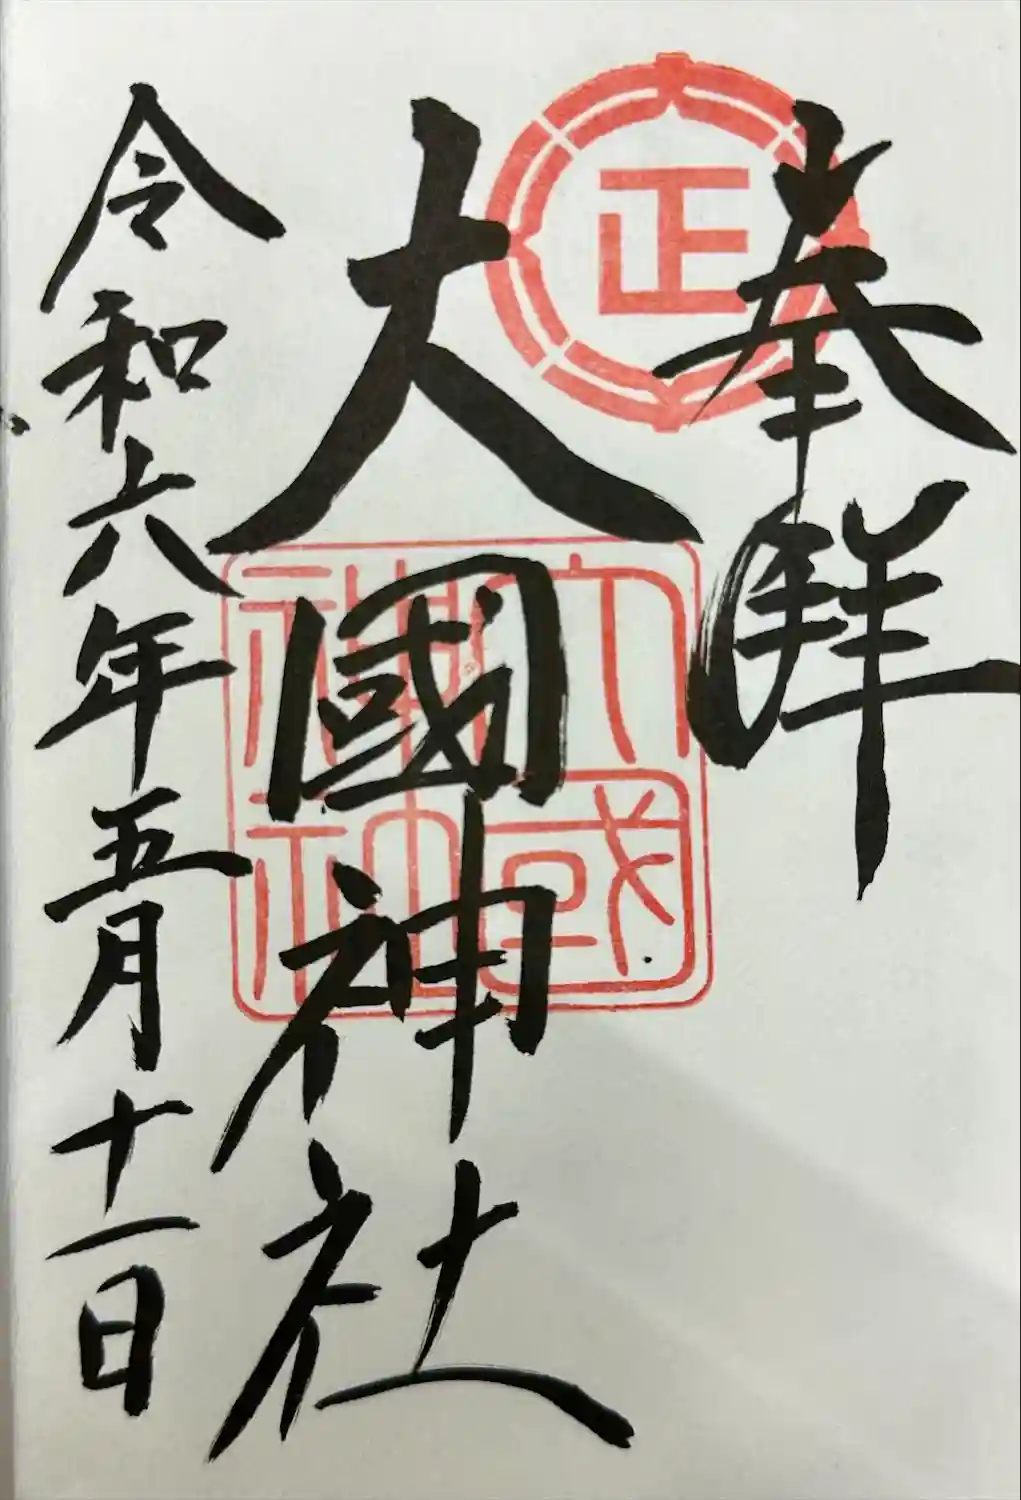 奉拝
正
大國神社
大國
神社
令和六年五月十一日